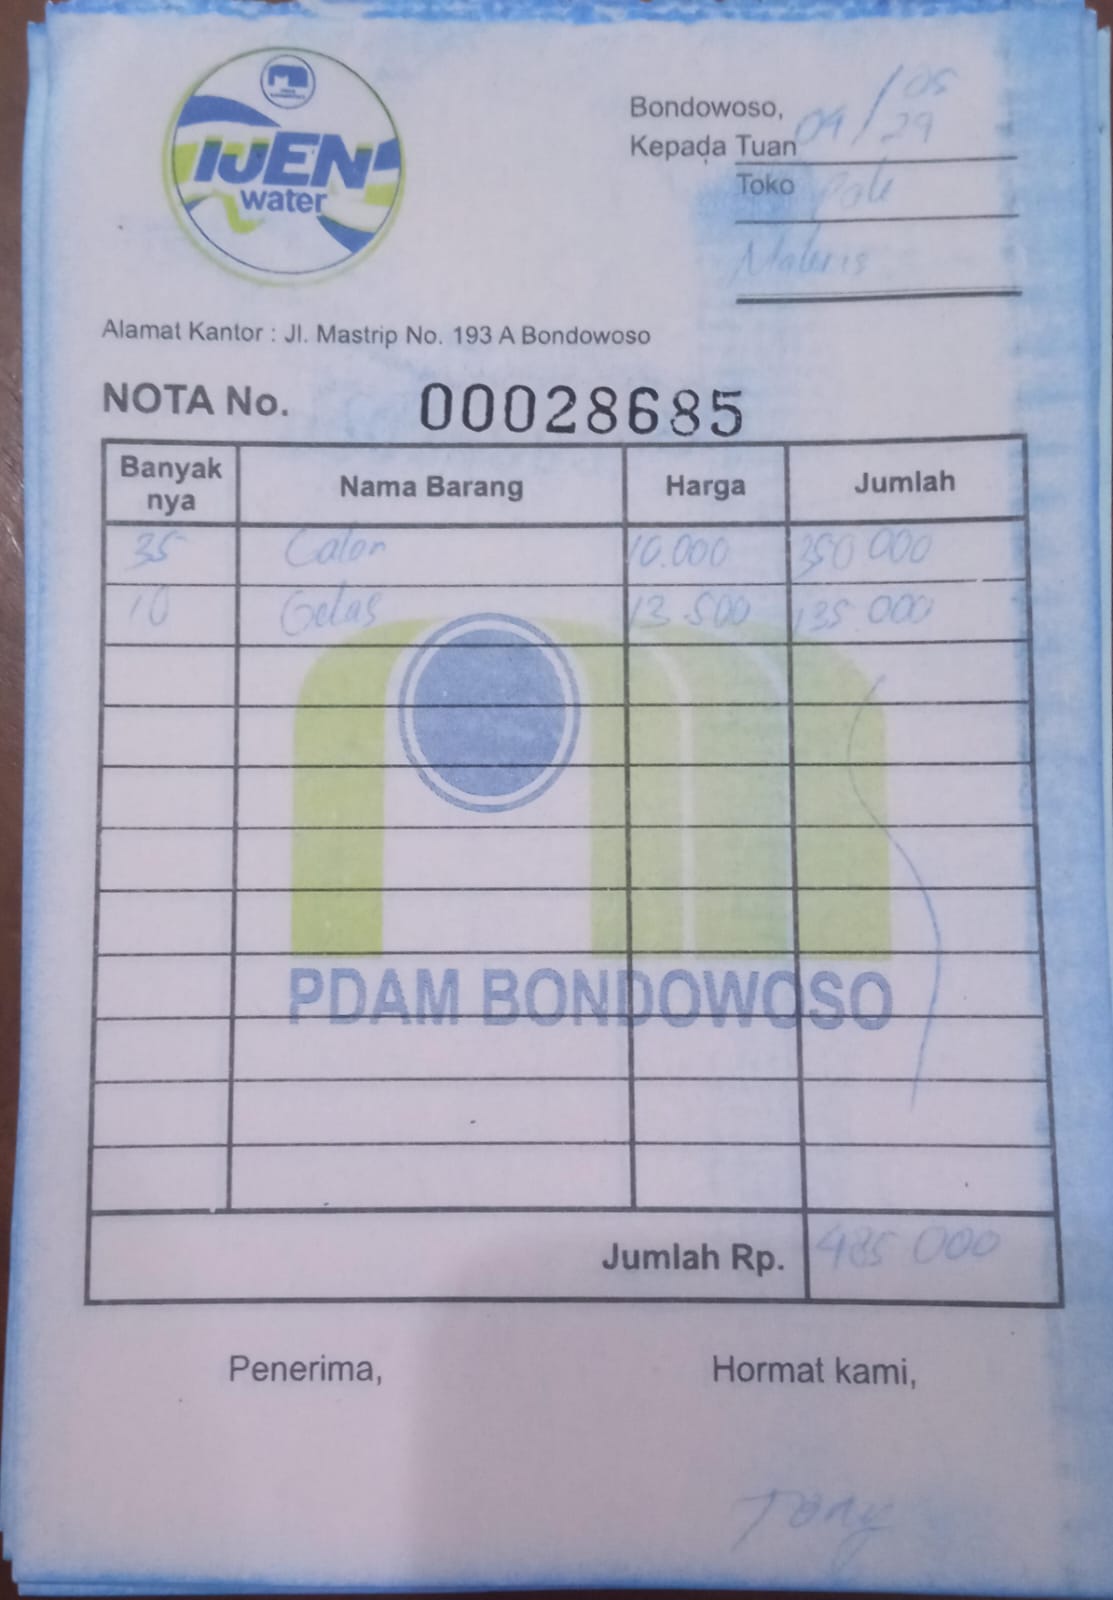 IJEN
water
Bondowoso, 04/05
Kepada Tuan
Toko Pak
Alamat Kantor : Jl. Mastrip No. 193 A Bondowoso
NOTA No. 00028685
Banyak nya Nama Barang Harga Jumlah
35 Galon 10.000 350 000
10 Gelas 13.500 135 000
PDAM BONDOWOSO
Jumlah Rp. 485 000
Penerima, Hormat kami,
Tony